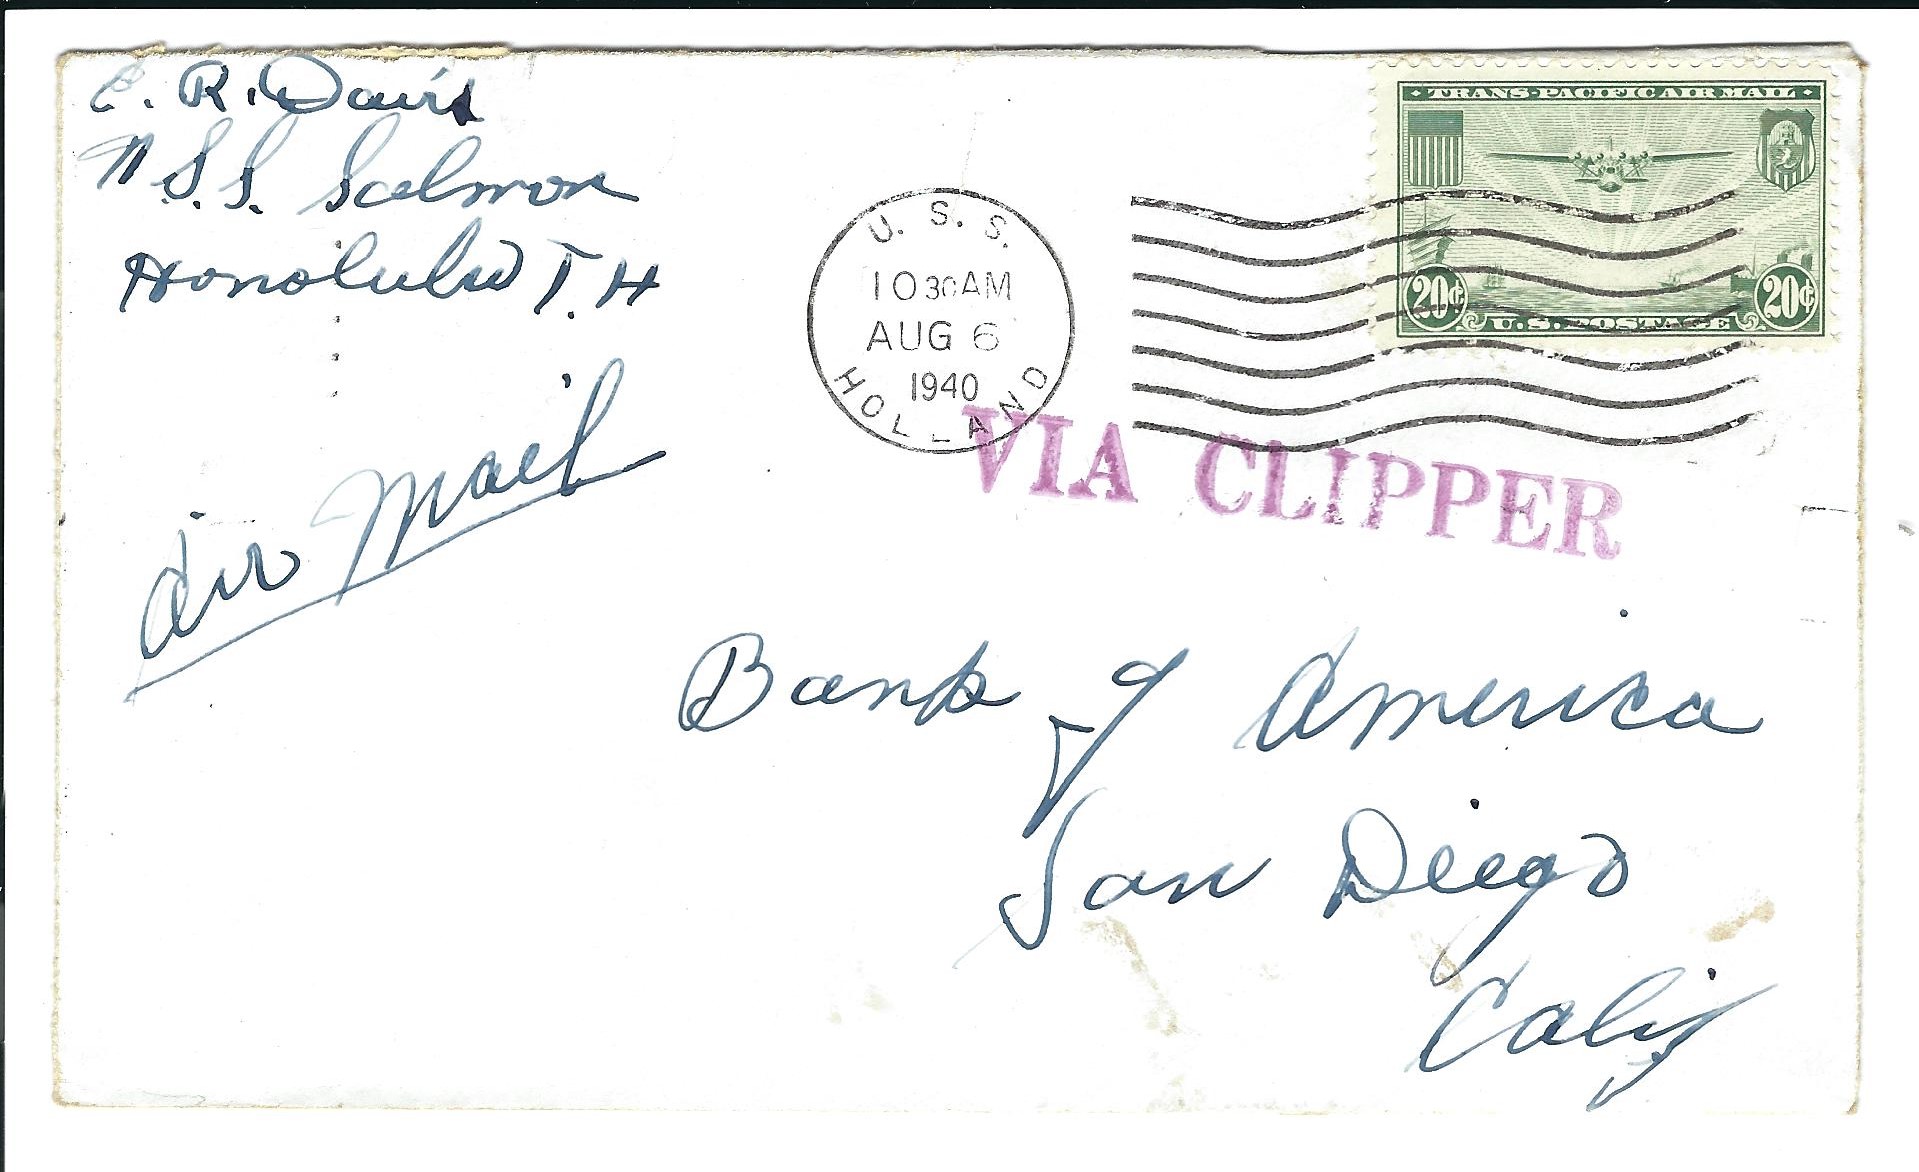 E. R. Davis
U.S.S. Salmon
Honolulu T.H
Air Mail
U. S. S.
10 30 AM
AUG 6
1940
HOLLAND
TRANS-PACIFIC AIR MAIL
20¢ 20¢
U.S. POSTAGE
VIA CLIPPER
Bank of America
San Diego
Calif